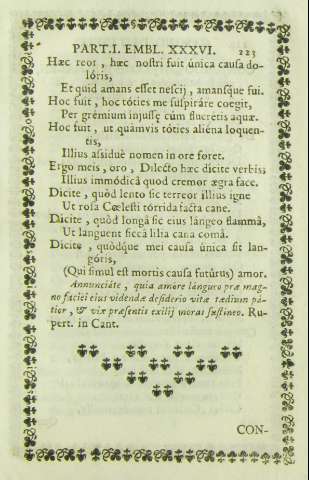 PART. I. EMBL. XXXVI. 223
Hæc reor, hæc nostri fuit única causa do-
lóris,
Et quid amans esset nescij, amansque fui.
Hoc fuit, hoc tóties me suspiráre coegit,
Per grémium injussę cùm flucretis aquæ.
Hoc fuit, ut quamvis tóties aliéna loquen-
tis,
Illius assiduè nomen in ore foret.
Ergo meis, oro, Dilecto hæc dicite verbis,
Illius immódicâ quod cremor ægra face.
Dicite, quòd lento sic terreor illius igne
Ut rosa Cœlesti tórrida facta cane.
Dicite, quòd longâ sic eius lángeo flammâ,
Ut languent siccâ lilia cana comâ.
Dicite, quòdque mei causa única sit lan-
góris,
(Qui simul est mortis causa futúrus) amor.
Annunciáte, quia amóre lánguro præ mag-
no faciei eius videndæ desiderio vitæ tædium pá-
tior, & vix præsentis exilij moras sustíneo. Ru-
pert. in Cant.
CON-